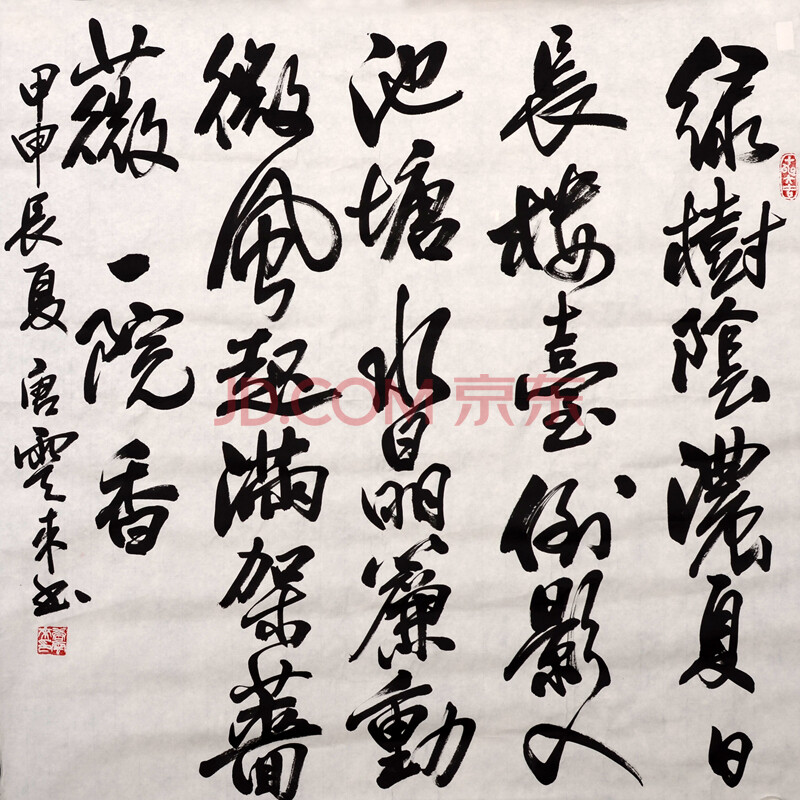 绿樹陰濃夏日
長樓臺倒影入
池塘水晶簾動
微風起滿架薔
薇一院香
甲申長夏唐雲来书
JD.COM 京东